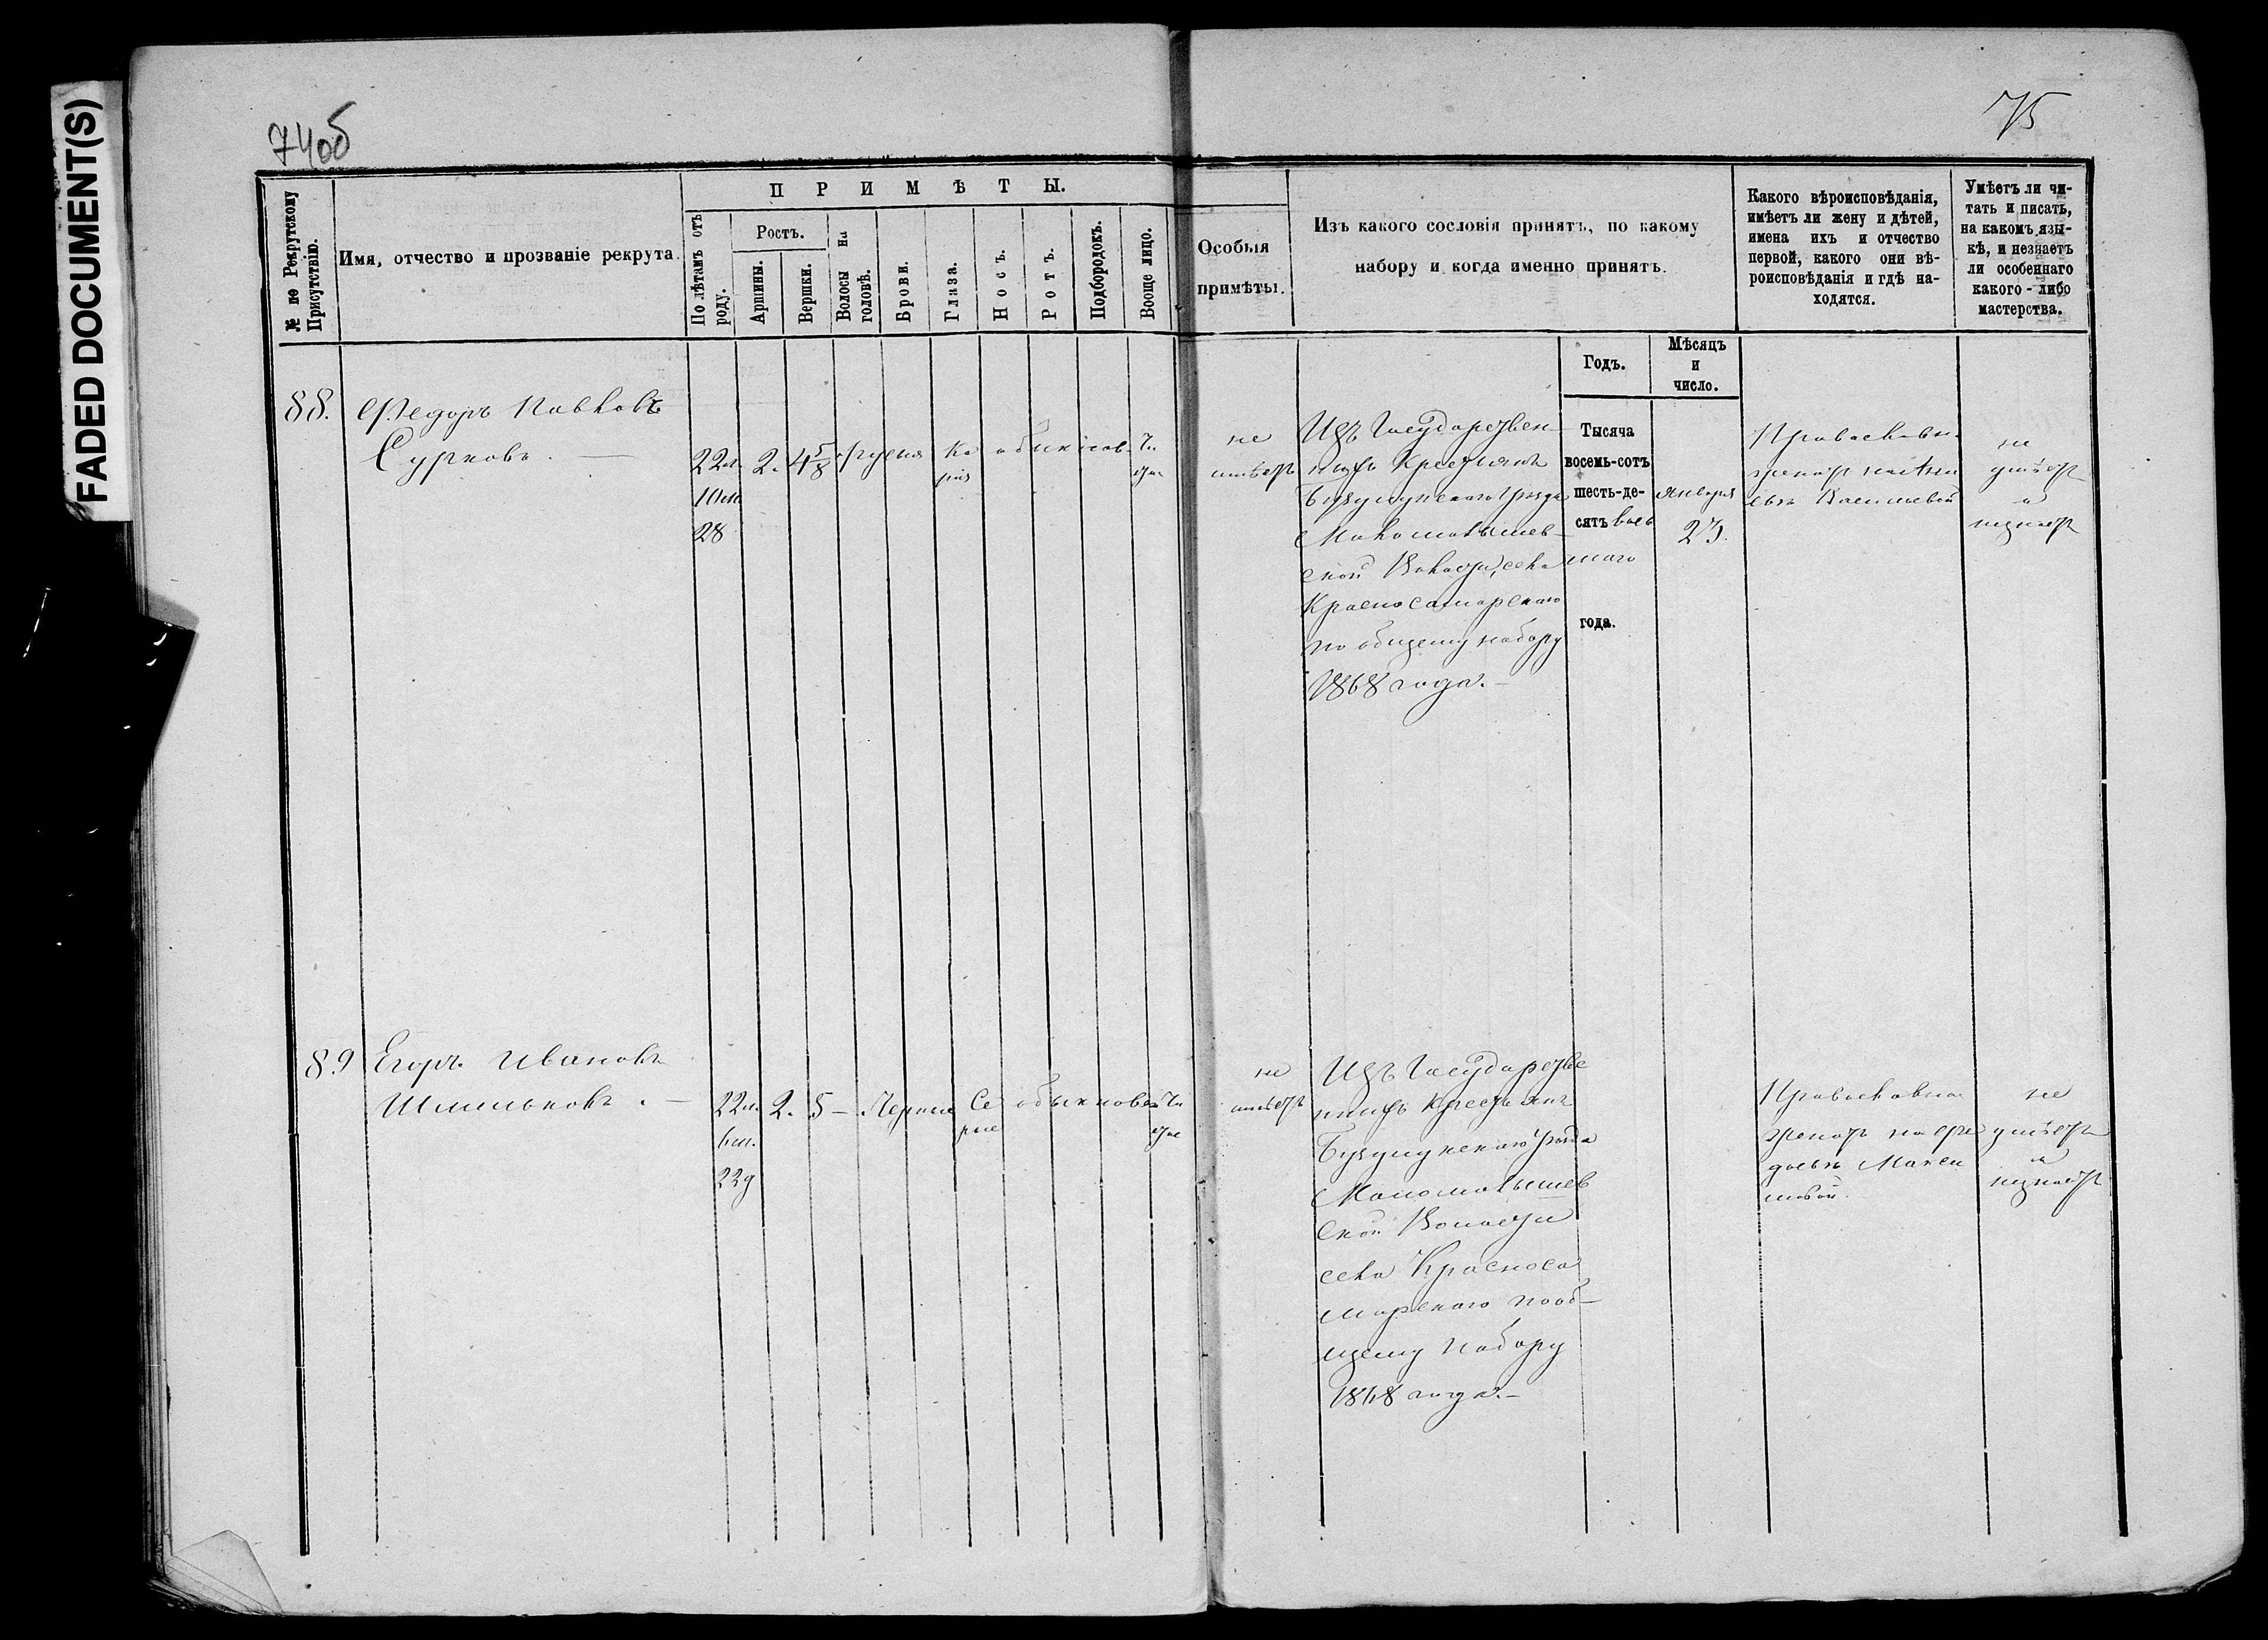 FADED DOCUMENT(S)
74об
75
№ по Рекрутскому Присутствію.
Имя, отчество и прозваніе рекрута.
ПРИМѢТЫ.
По лѣтамъ отъ роду.
Ростъ.
Аршины.
Вершки.
Волосы на головѣ.
Брови.
Глаза.
Носъ.
Ротъ.
Подбородокъ.
Вооще лицо.
Особыя
примѣты.
Изъ какого сословія принятъ, по какому
набору и когда именно принятъ.
Какого вѣроисповѣданія,
имѣетъ ли жену и дѣтей,
имена ихъ и отчество
первой, какого они вѣ-
роисповѣданія и гдѣ на-
ходятся.
Умѣетъ ли чи-
тать и писать,
на какомъ язы-
кѣ, и незнаетъ
ли особеннаго
какого-либо
мастерства.
Годъ.
Мѣсяцъ
и
число.
88.
Федоръ Павловъ
Сурковъ.
22 л.
10 м
28
2.
4 5/8
русыя
Ка
рія
обыкнов.
Чи
стое
не
имѣетъ
Изъ Государствен-
ныхъ крестьянъ
Бузулукскаго Уѣзда
Мало малышев-
ской Волости, села
Красносамарскаго
по общему набору
1868 года.-
Тысяча
восемь-сотъ
шесть-де-
сятъ вось
маго
года.
января
23.
Православн.
женатъ на
Васильевой
не
умѣетъ
и
незнаетъ
89
Егоръ Ивановъ
Шмельковъ.-
22 л.
6 м.
22 д
2.
5-
Черные
Се
рые
обыкновен
Чи
стое
не
имѣетъ
Изъ Государстве
нныхъ крестьянъ
Бузулукскаго Уѣзда
Маломалышев
ской Волости
села Красноса
марскаго пооб-
щему набору
1868 года.-
Православна
женатъ на Ав
дотьѣ Макси
мовой.
не
умѣетъ
и
незнаетъ